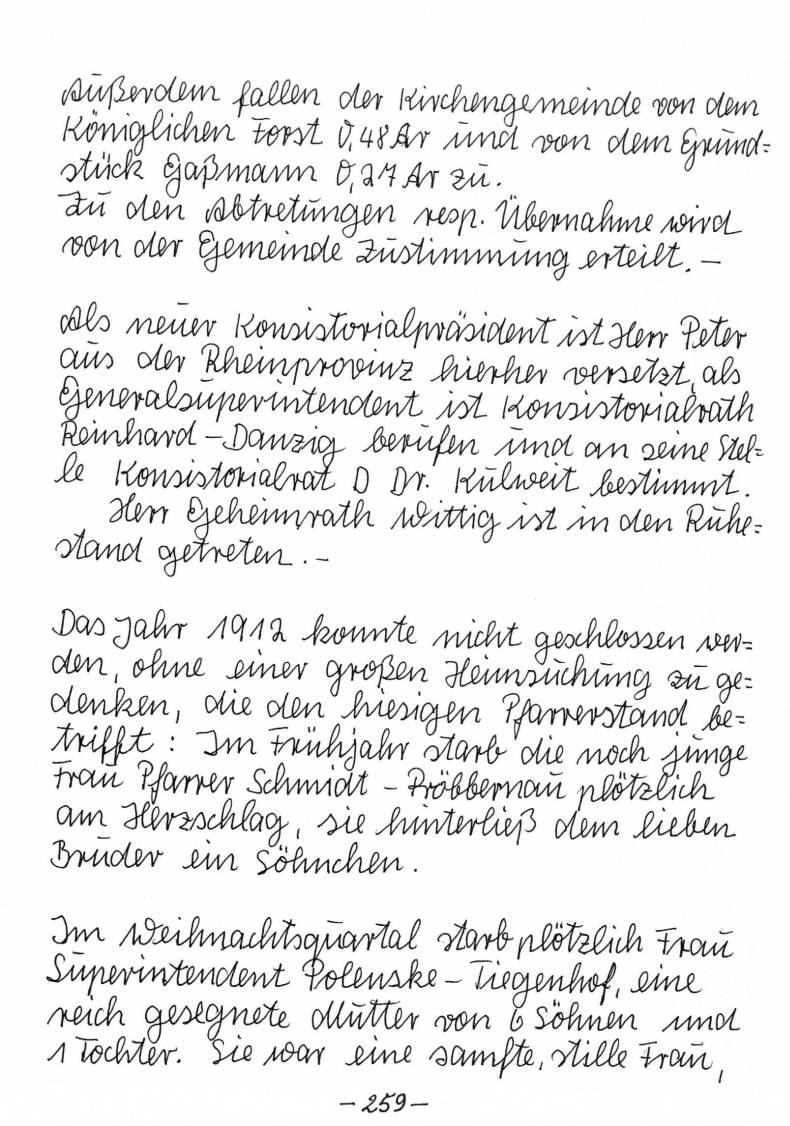 Außerdem fallen der Kirchengemeinde von dem
Königlichen Forst 0,48 Ar und von dem Grund=
stück Gaßmann 0,27 Ar zu.
Zu den Abtretungen resp. Übernahme wird
von der Gemeinde Zustimmung erteilt. –
Als neuer Konsistorialpräsident ist Herr Peter
aus der Rheinprovinz hierher versetzt, als
Generalsuperintendent ist Konsistorialrath
Reinhard – Danzig berufen und an seine Stel=
le Konsistorialrat D Dr. Kulweit bestimmt.
Herr Geheimrath Wittig ist in den Ruhe=
stand getreten. –
Das Jahr 1912 konnte nicht geschlossen wer=
den, ohne einer großen Heimsuchung zu ge=
denken, die den hiesigen Pfarrerstand be=
trifft: Im Frühjahr starb die noch junge
Frau Pfarrer Schmidt – Pröbbernau plötzlich
am Herzschlag, sie hinterließ dem lieben
Bruder ein Söhnchen.
Im Weihnachtsquartal starb plötzlich Frau
Superintendent Polenske – Tiegenhof, eine
reich gesegnete Mutter von 6 Söhnen und
1 Tochter. Sie war eine sanfte, stille Frau,
– 259 –